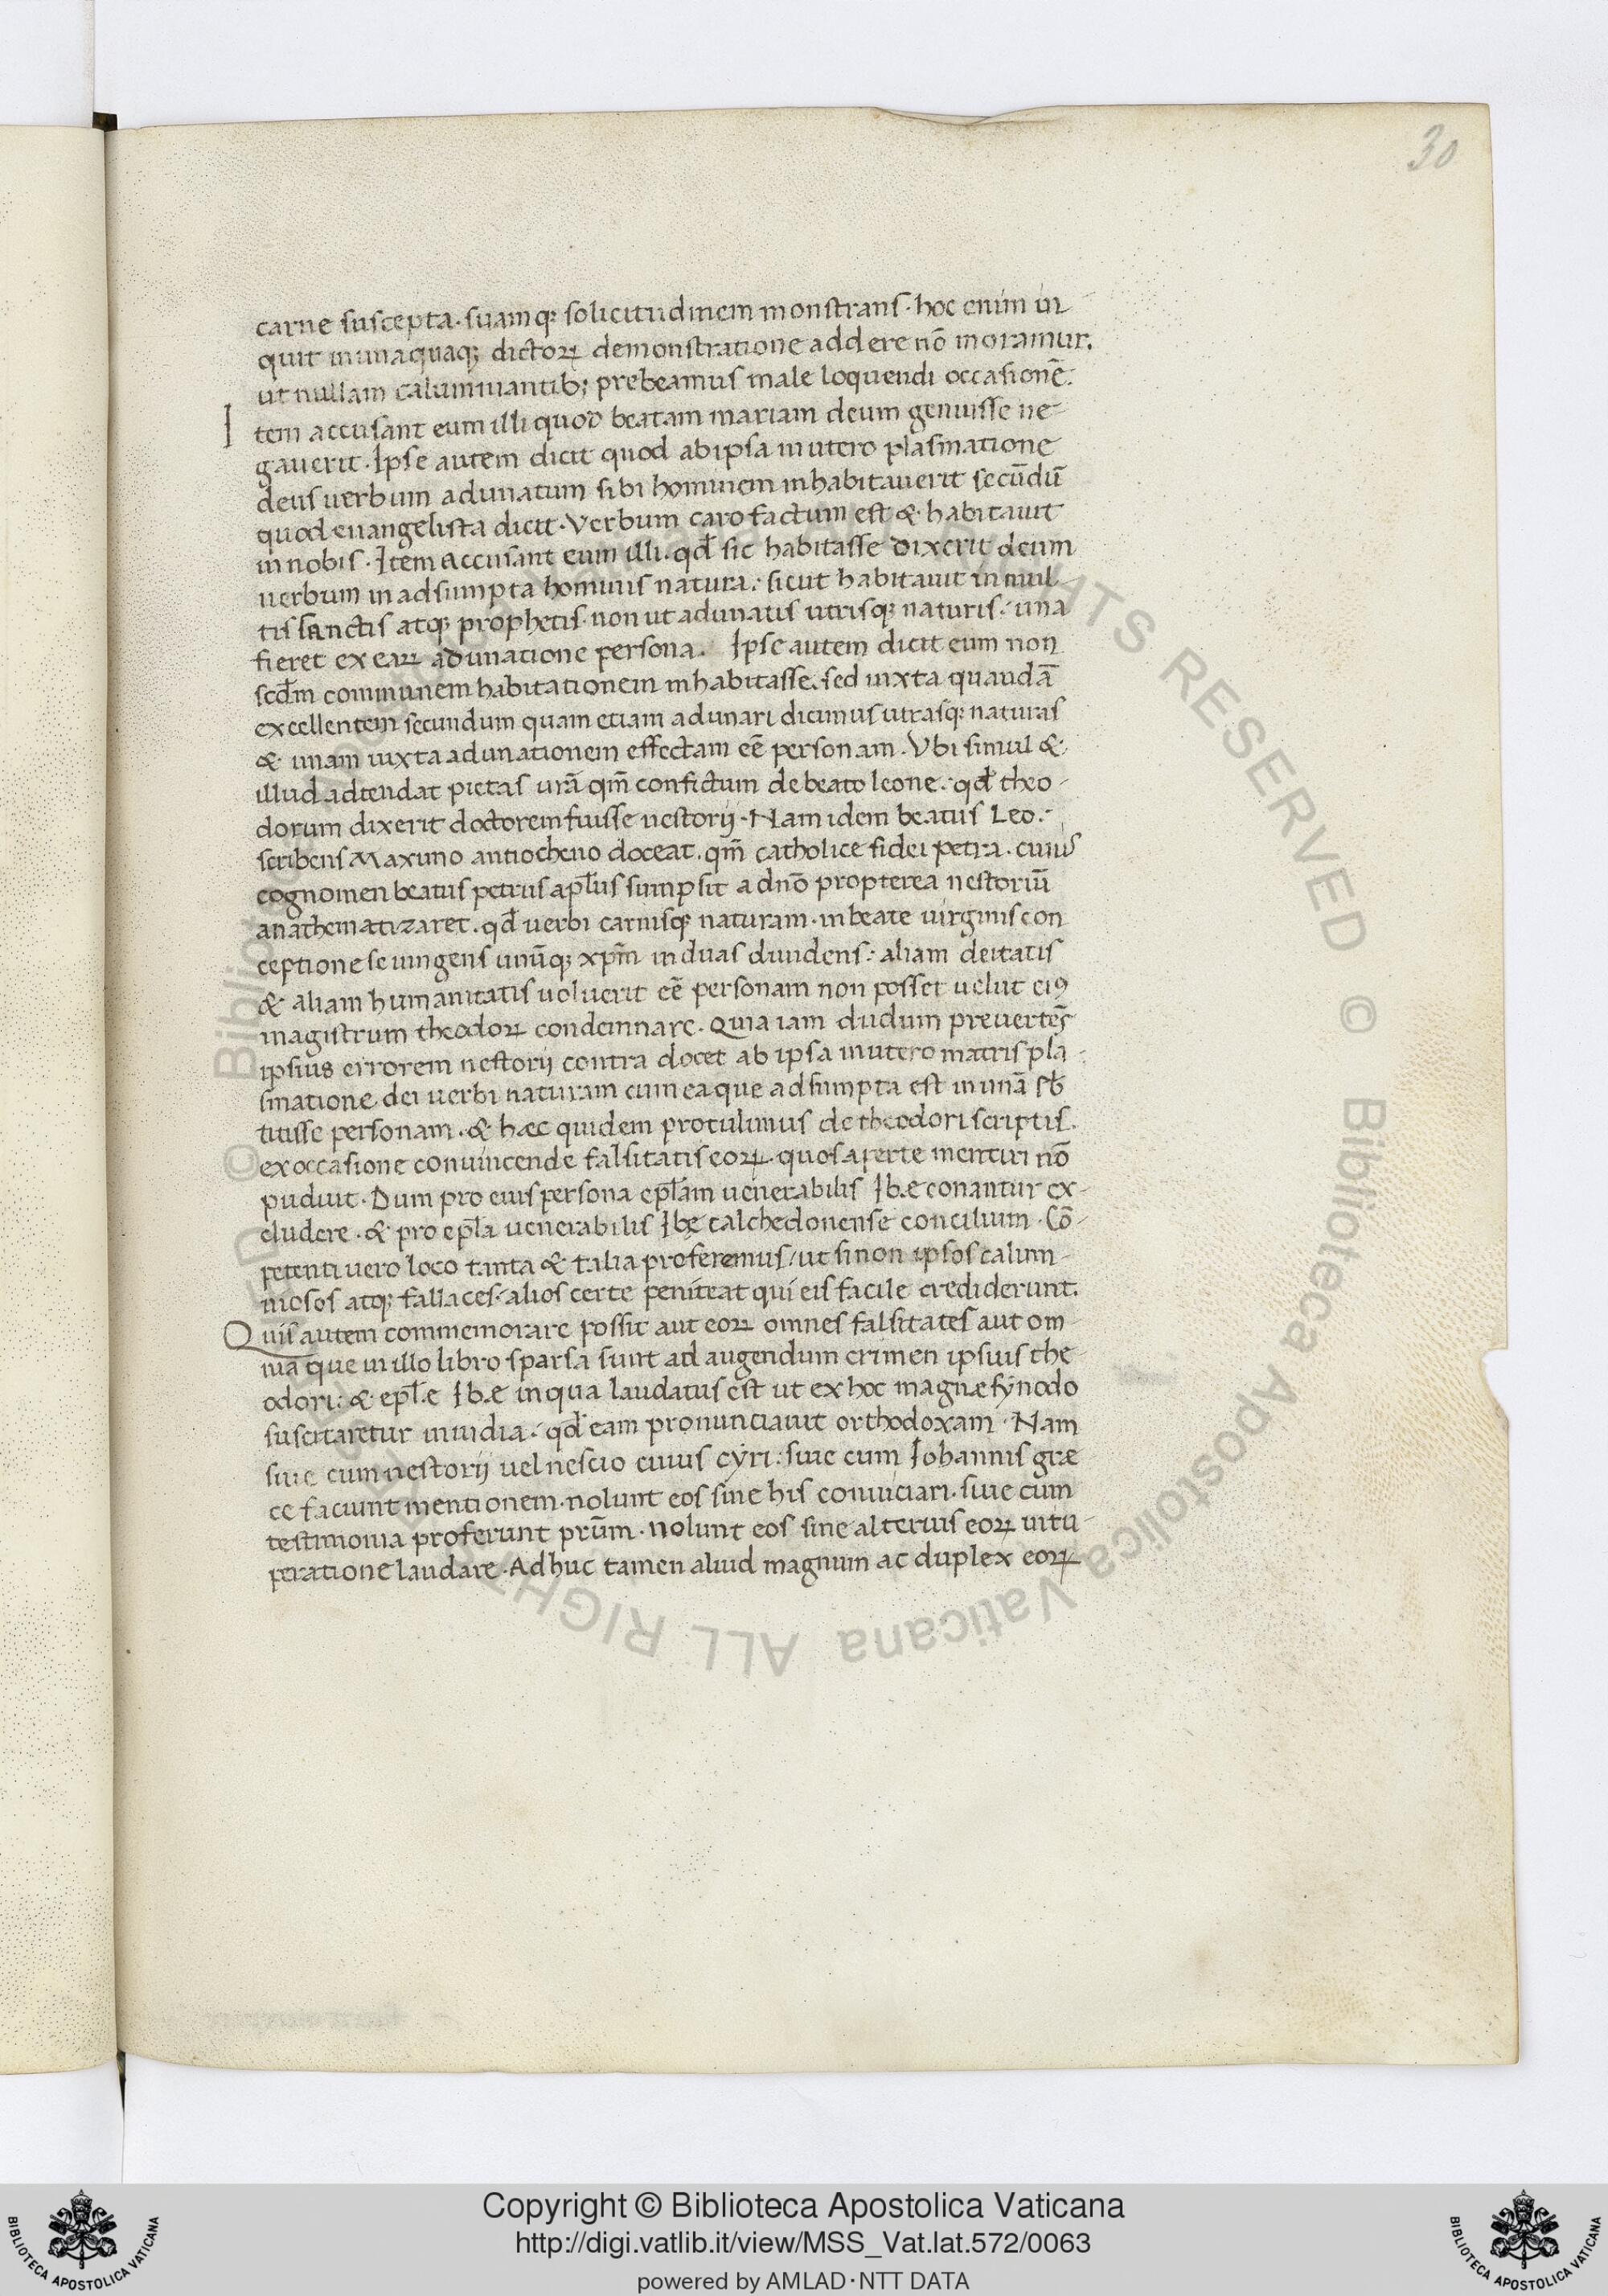 30
carne suscepta· suamq; solicitudinem monstrans· hoc enim in
quit in unaquaq; dictoꝝ demonstratione addere nō moramur.
ut nullam calumniantib; prebeamus male loquendi occasionē.
Item accusant eum illi quod beatam mariam deum genuisse ne-
gauerit. Ipse autem dicit quod ab ipsa in utero plasmatione
deus uerbum adunatum sibi hominem inhabitauerit secūdū
quod euangelista dicit. Verbum caro factum est & habitauit
in nobis. Item accusant eum illi. qđ sic habitasse dixerit deum
uerbum in adsumpta hominis natura: sicut habitauit in mul-
tis sanctis atq; prophetis. non ut adunatis utrisq; naturis: una
fieret ex eaꝝ adunatione persona. Ipse autem dicit eum non
scđm communem habitationem inhabitasse. sed iuxta quandā
excellentem secundum quam etiam adunari dicimus utrasq; naturas
& unam iuxta adunationem effectam eē personam. Vbi simul &
illud adtendat pietas urā qm̄ confictum de beato leone: qđ theo-
dorum dixerit doctorem fuisse nestorij. Nam idem beatus Leo:
scribens Maximo antiocheno doceat. qm̄ catholice fidei petra. cuius
cognomen beatus petrus apl̄us sumpsit a dnō propterea nestoriū
anathematizaret. qđ uerbi carnisq; naturam. in beate uirginis con
ceptione seiungens unūq; xpm̄ in duas diuidens: aliam deitatis
& aliam humanitatis uoluerit eē personam non posset uelut eiꝰ
magistrum theodoꝝ condemnare. Quia iam dudum preuertēs
ipsius errorem nestorij contra docet ab ipsa in utero matris pla-
smatione dei uerbi naturam cum ea que adsumpta est in unā sb̄
titisse personam. & hæc quidem protulimus de theodori scriptis.
ex occasione conuincende falsitatis eoꝝ. quos aperte mentiri nō
puduit. Dum pro eius persona epl̄am uenerabilis Ibæ conantur ex-
cludere. & pro epl̄a uenerabilis Ibę calchedonense concilium. Cō-
petenti uero loco tanta & talia proferemus: ut si non ipsos calum-
niosos atq; fallaces: alios certe peniteat qui eis facile crediderunt.
Quis autem commemorare possit aut eoꝝ omnes falsitates aut om-
nia que in illo libro sparsa sunt ad augendum crimen ipsius the-
odori: & epl̄æ Ibæ in qua laudatus est ut ex hoc magnæ synodo
suscitaretur inuidia: qđ eam pronunciauit orthodoxam. Nam
siue cum nestorij uel nescio cuius cyri: siue cum Iohannis græ
ce faciunt mentionem. nolunt eos sine his conuiciari. siue cum
testimonia proferunt prūm. nolunt eos sine alterius eoꝝ uitu-
peratione laudare. Adhuc tamen aliud magnum ac duplex eoꝝ
© Biblioteca Apostolica Vaticana ALL RIGHTS RESERVED
Copyright © Biblioteca Apostolica Vaticana
http://digi.vatlib.it/view/MSS_Vat.lat.572/0063
powered by AMLAD·NTT DATA
BIBLIOTECA APOSTOLICA VATICANA
BIBLIOTECA APOSTOLICA VATICANA